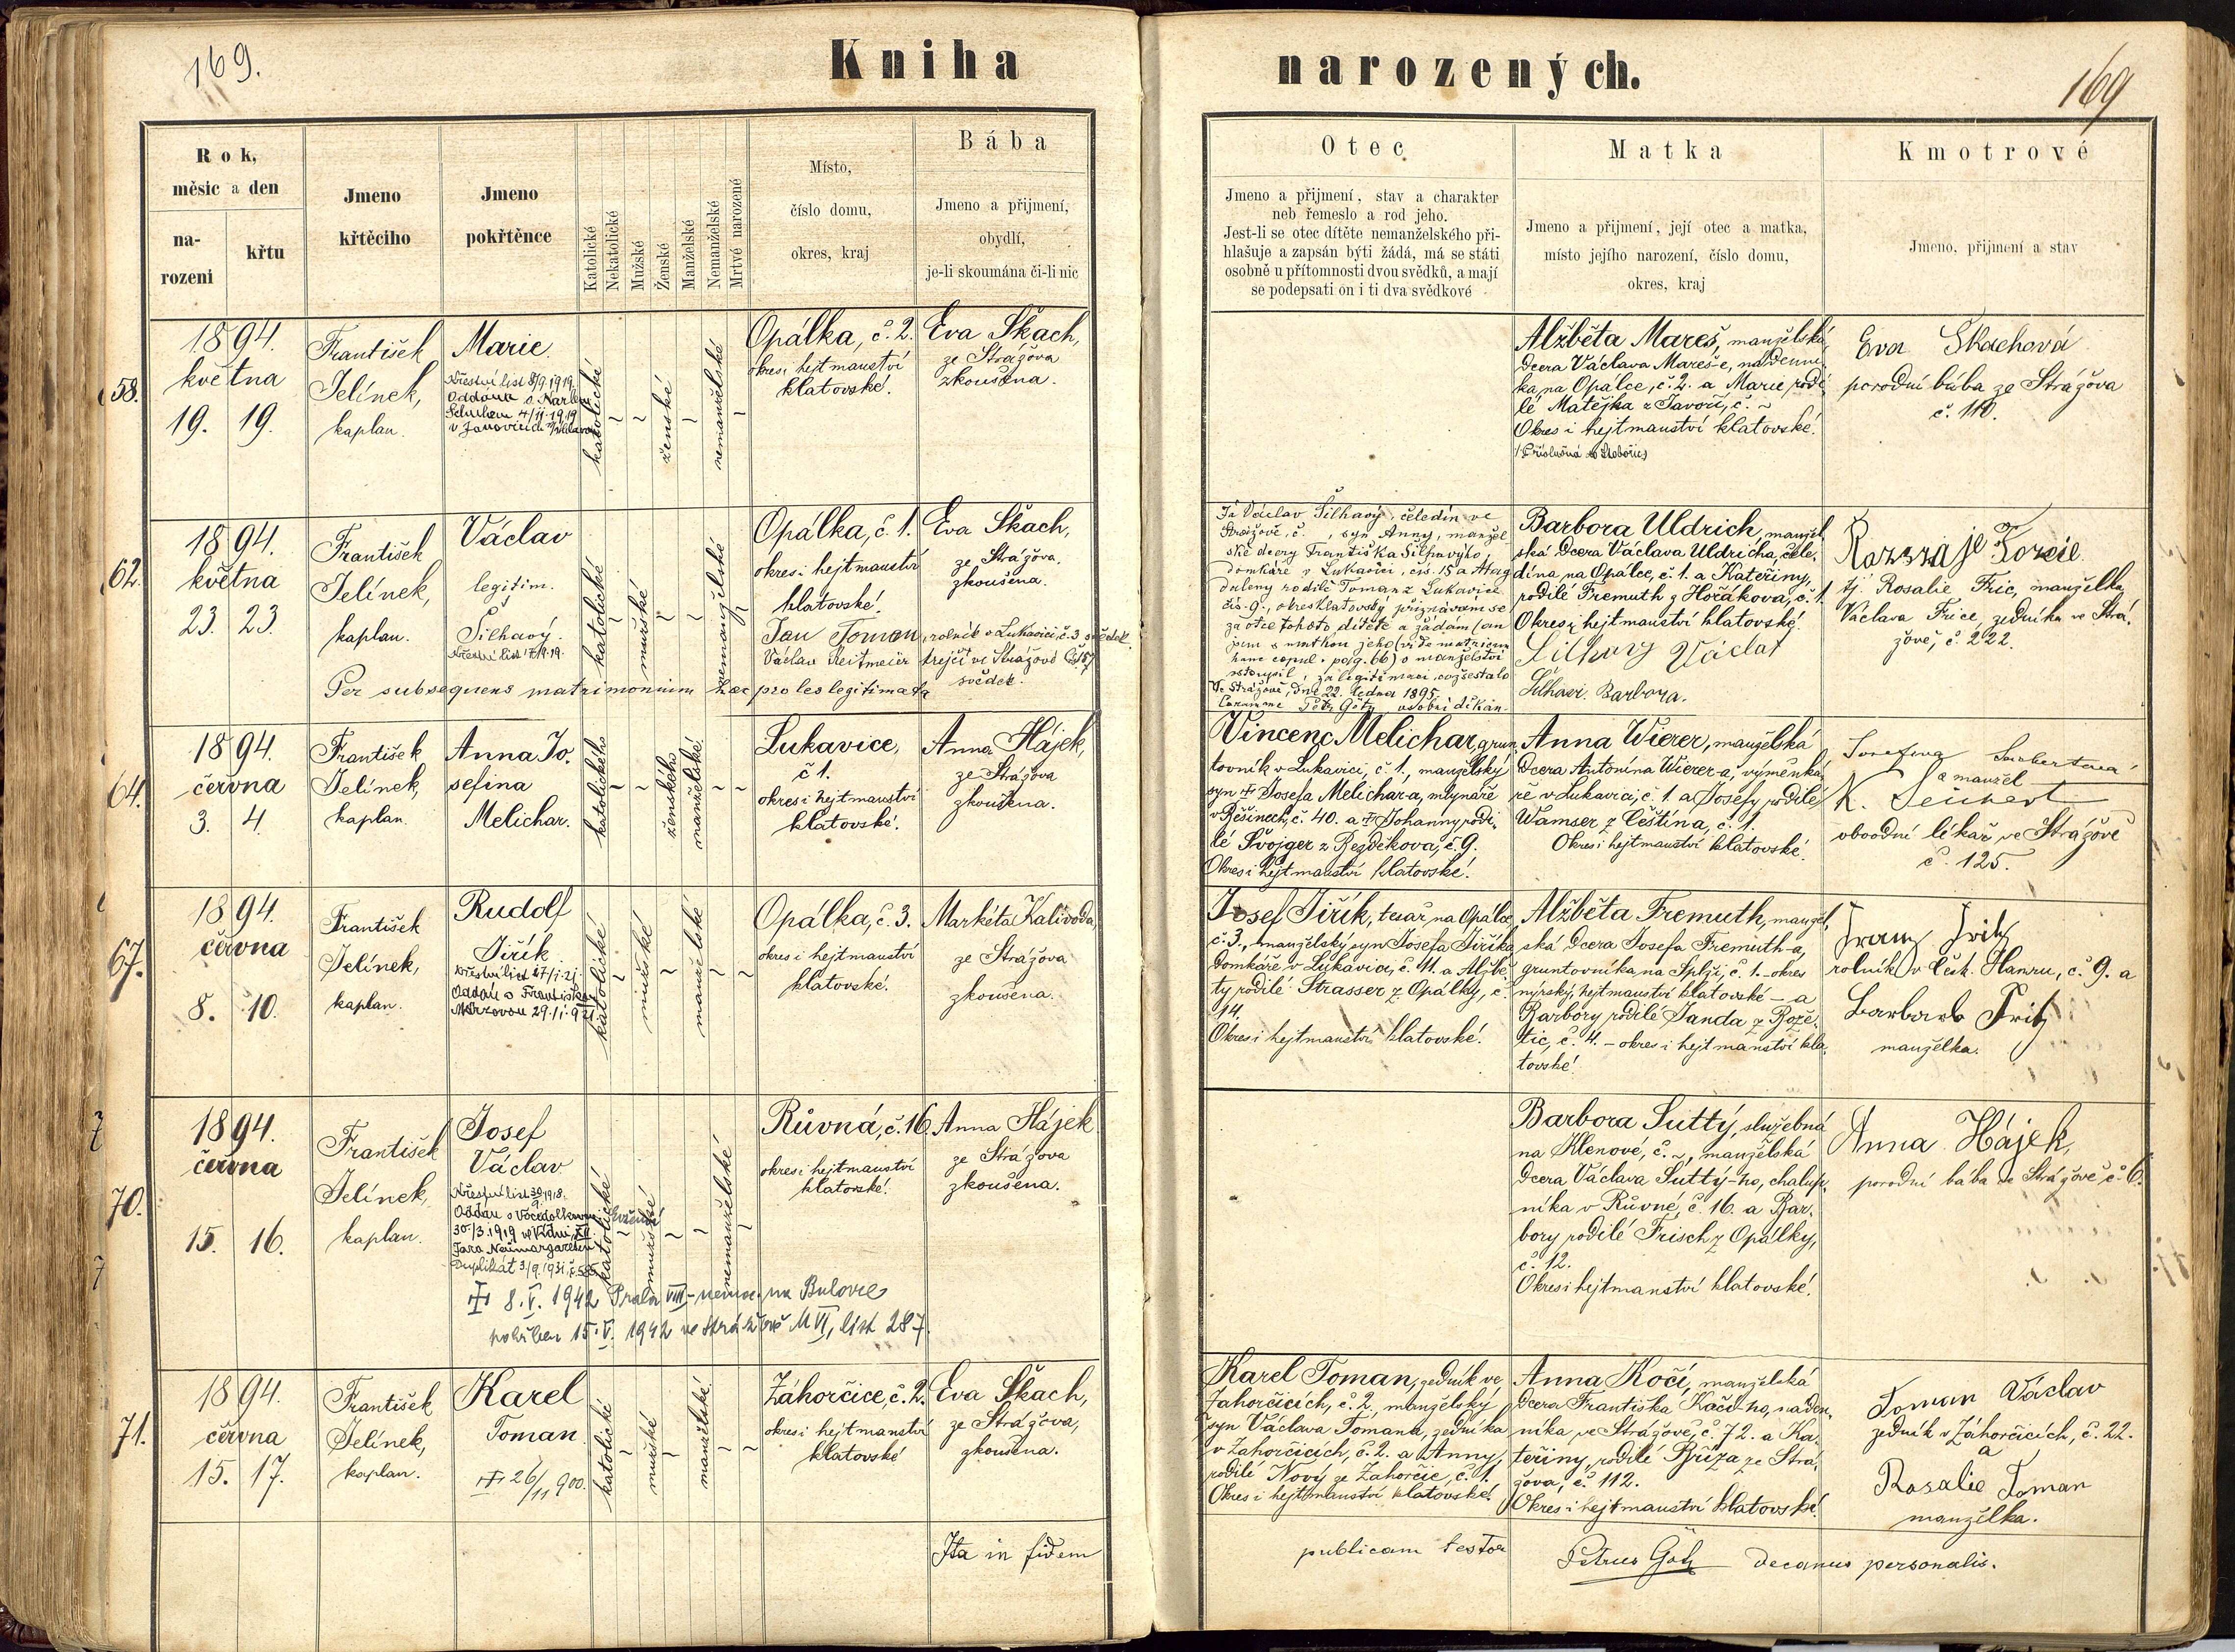 169.
Kniha
narozených.
169
Rok,
měsic a den
na-
rozeni
křtu
Jmeno
křtěciho
Jmeno
pokřtěnce
Katolické
Nekatolické
Mužské
Ženské
Manželské
Nemanželské
Mrtvé narozené
Místo,
číslo domu,
okres, kraj
Bába
Jmeno a přijmení,
obydlí,
je-li skoumána či-li nic
Otec
Jmeno a přijmení, stav a charakter
neb řemeslo a rod jeho.
Jest-li se otec dítěte nemanželského při-
hlašuje a zapsán býti žádá, má se státi
osobně u přítomnosti dvou svědků, a mají
se podepsati on i ti dva svědkové
Matka
Jmeno a přijmení, její otec a matka,
místo jejího narození, číslo domu,
okres, kraj
Kmotrové
Jmeno, přijmení a stav
58.
1894.
května
19. 19.
František
Jelínek,
kaplan.
Marie.
Křestní list
4/11. 1919
katolické
ženské
nemanželské
Opálka, č. 2.
okres i hejtmanství
klatovské.
Eva Škach,
ze Strážova
zkoušena.
Alžběta Mareš, manželská
dcera Václava Mareš-e, nádenní-
ka, na Opálce, č. 2. a Marie rodi-
lé Matějka z Javoří, č. ~
Okres i hejtmanství klatovské.
Eva Skachová
porodní bába ze Strážova
č. 110.
62.
1894.
května
23. 23.
František
Jelínek,
kaplan.
Václav
legitim.
Šilhavý.
Křestní list
katolické
mužské
nemanželské
Opálka, č. 1.
okres i hejtmanství
klatovské.
Jan Toman, rolník v Lukavici č. 3 svědek
Václav Reitmeier krejčí ve Strážově
svědek.
Per subsequens matrimonium haec proles legitimata
Eva Škach,
ze Strážova,
zkoušena.
Já Václav Šilhavý, čeledín ve
Strážově, č. , syn Anny, manžel-
ské dcery Františka Šilhavýho,
domkáře v Lukavici, čís. 15 a
rodilé Toman z Lukavice
čís. 9., okres klatovský přiznávám se
za otce tohoto dítěte a žádám
Ve Strážově, dne 22. ledna 1895.
osobní děkan.
Barbora Uldrich, manžel-
ská dcera Václava Uldricha, čele-
dína na Opálce, č. 1. a Kateřiny,
rodilé Fremuth z Hořákova, č. 1.
Okres i hejtmanství klatovské.
Silhavy Václav
Silhavi Barbora.
tj. Rosalie Fric, manželka
Václava Frice, zedníka ve Strá-
žově, č. 222.
64.
1894.
června
3. 4.
František
Jelínek,
kaplan.
Anna Jo-
sefina
Melichar.
katolického
ženského
manželské
Lukavice,
č 1.
okres i hejtmanství
klatovské.
Anna Hájek,
ze Strážova
zkoušena.
Vincenc Melichar, grun-
tovník v Lukavici, č. 1., manželský
syn † Josefa Melichar-a, mlynáře
v Běšinech, č. 40. a † Johanny rodi-
lé Švojger z Bezděkova, č. 9.
Okres i hejtmanství klatovské.
Anna Wierer, manželská
dcera Antonína Wierer-a, výměnká-
ře v Lukavici, č. 1. a Josefy rodilé
Wamser z Čeština, č. 1.
Okres i hejtmanství klatovské.
a manžel
obvodní lékař ve Strážově
č. 125.
67.
1894.
června
8. 10.
František
Jelínek,
kaplan.
Rudolf
Jiřík
Křestní list
Oddán s Františkou
katolické
mužské
manželské
Opálka, č. 3.
okres i hejtmanství
klatovské.
Markéta Kalivoda,
ze Strážova
zkoušena.
Josef Jiřík, tesař na Opálce
č. 3., manželský syn Josefa Jiříka
domkáře v Lukavici, č. 11. a Alžbě-
ty rodilé Strasser z Opálky, č.
14.
Okres i hejtmanství klatovské.
Alžběta Fremuth, manžel-
ská dcera Josefa Fremuth-a,
gruntovníka, na Spliži, č. 1. - okres
nýrský, hejtmanství klatovské - a
Barbory rodilé Janda z Rože-
tic, č. 4. - okres i hejtmanství kla-
tovské.
Franz Fritz
rolník v Čech. Hamru, č. 9. a
Barbara Fritz
manželka.
70.
1894.
června
15. 16.
František
Jelínek,
kaplan.
Josef
Václav
Křestní list
30/3. 1919 ve Vídni
Duplikát 3/9. 1931 č. 585
katolické
mužské
nemanželské
† 8. V. 1942 Praha VIII - nemoc. na Bulovce
pohřben 15. V. 1942 ve Strážově M VI, list 287.
Růvná, č. 16.
okres i hejtmanství
klatovské.
Anna Hájek
ze Strážova
zkoušena.
Barbora Suttý, služebná
na Klenové, č. ~, manželská
dcera Václava Suttý-ho, chalup-
níka v Růvné, č. 16. a Bar-
bory rodilé Frisch z Opálky,
č. 12.
Okres i hejtmanství klatovské.
Anna Hájek,
porodní bába ve Strážově č. 6.
71.
1894.
června
15. 17.
František
Jelínek,
kaplan.
Karel
Toman
† 26/11 900.
katolické
mužské
manželské
Záhorčice, č. 2.
okres i hejtmanství
klatovské
Eva Škach,
ze Strážova,
zkoušena.
Karel Toman, zedník ve
Zahorčicích, č. 2, manželský
syn Václava Tomana, zedníka
v Zahorčicích, č. 2. a Anny,
rodilé Nový ze Zahorčic, č. 1.
Okres i hejtmanství klatovské.
Anna Kočí, manželská
dcera Františka Kočí-ho, náden-
níka ve Strážově, č. 72. a Ka-
teřiny, rodilé Bříza ze Strá-
žova, č. 112.
Okres i hejtmanství klatovské.
Toman Václav
zedník v Záhorčicích, č. 22.
a
Rosalie Toman
manželka.
Ita in fidem
publicam testor
Petrus Götz decanus personalis.